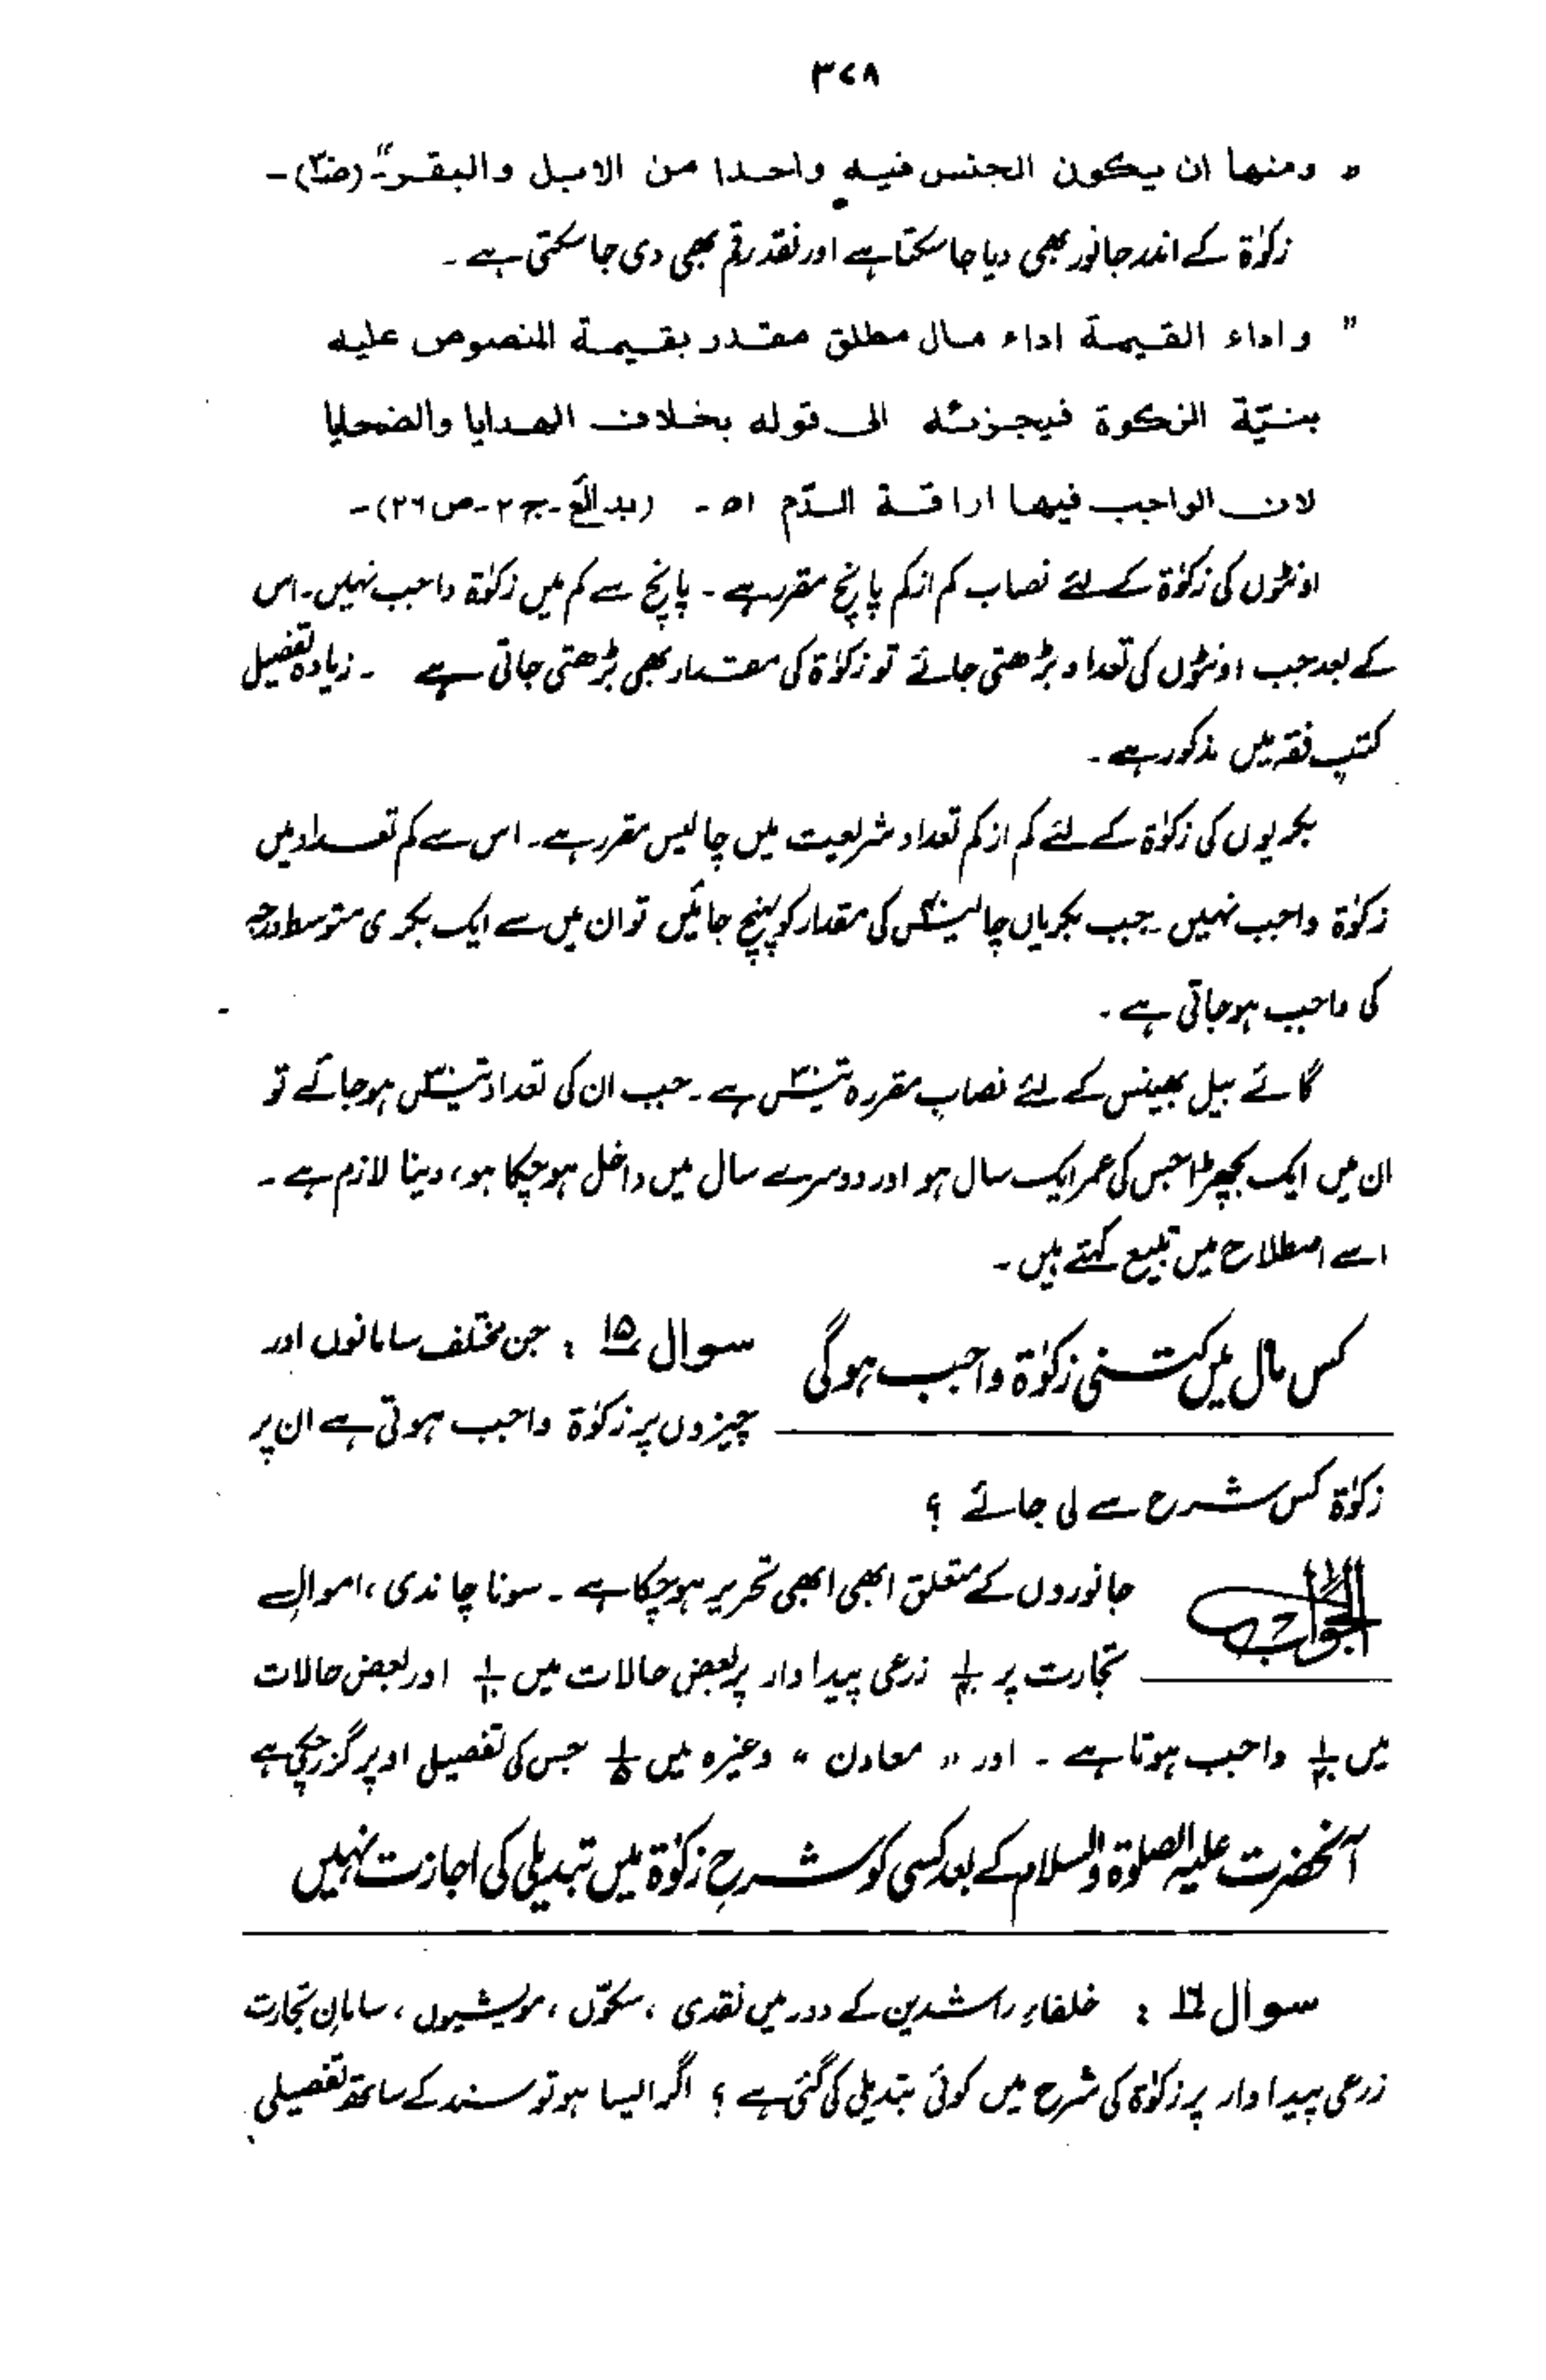 ۳۷۸
" ومنها ان يكون الجنس فيه واحدا من الابل والبقر" (ص۳۰)۔
زکوٰۃ کے اندر جانور بھی دیا جا سکتا ہے اور نقد رقم بھی دی جا سکتی ہے۔
" واداء القيمة اداء مال مطلق مقدر بقيمة المنصوص عليه
بنيّة الزكوة فيجزئه الى قوله بخلاف الهدايا والضحايا
لان الواجب فيها اراقة الدّم اه۔ (بدائع۔ج ۲۔ص ۲۶)۔
اونٹوں کی زکوٰۃ کے لئے نصاب کم از کم پانچ مقرر ہے۔ پانچ سے کم میں زکوٰۃ واجب نہیں۔ اس
کے بعد جب اونٹوں کی تعداد بڑھتی جائے تو زکوٰۃ کی مقدار بھی بڑھتی جاتی ہے ۔ زیادہ تفصیل
کتب فقہ میں مذکور ہے۔
بکریوں کی زکوٰۃ کے لئے کم از کم تعداد شریعت میں چالیس مقرر ہے۔ اس سے کم تعداد میں
زکوٰۃ واجب نہیں۔ جب بکریاں چالیس۴۰ کی مقدار کو پہنچ جائیں تو ان میں سے ایک بکری متوسط درجہ
کی واجب ہو جاتی ہے۔
گائے بیل بھینس کے لئے نصاب مقررہ تیس۳۰ ہے۔ جب ان کی تعداد تیس۳۰ ہو جائے تو
ان میں ایک بچھڑا جس کی عمر ایک سال ہو اور دوسرے سال میں داخل ہو چکا ہو، دینا لازم ہے۔
اسے اصطلاح میں تبیع کہتے ہیں۔
کس مال میں کتنی زکوٰۃ واجب ہوگی
سوال ۱۵ : جن مختلف سامانوں اور
چیزوں پر زکوٰۃ واجب ہوتی ہے ان پر
زکوٰۃ کس شرح سے لی جائے ؟
الجواب
جانوروں کے متعلق ابھی ابھی تحریر ہو چکا ہے۔ سونا چاندی ، اموالِ
تجارت پر ۱/۴۰ زرعی پیداوار پر بعض حالات میں ۱/۱۰ اور بعض حالات
میں ۱/۲۰ واجب ہوتا ہے۔ اور " معادن " وغیرہ میں ۱/۵ جس کی تفصیل اوپر گزر چکی ہے
آنحضرت علیہ الصلوۃ والسلام کے بعد کسی کو شرحِ زکوٰۃ میں تبدیلی کی اجازت نہیں
سوال ۱۶ : خلفاءِ راشدین کے دور میں نقدی ، سکوّں ، مویشیوں ، سامانِ تجارت
زرعی پیداوار پر زکوٰۃ کی شرح میں کوئی تبدیلی کی گئی ہے ؟ اگر ایسا ہو تو سند کے ساتھ تفصیلی